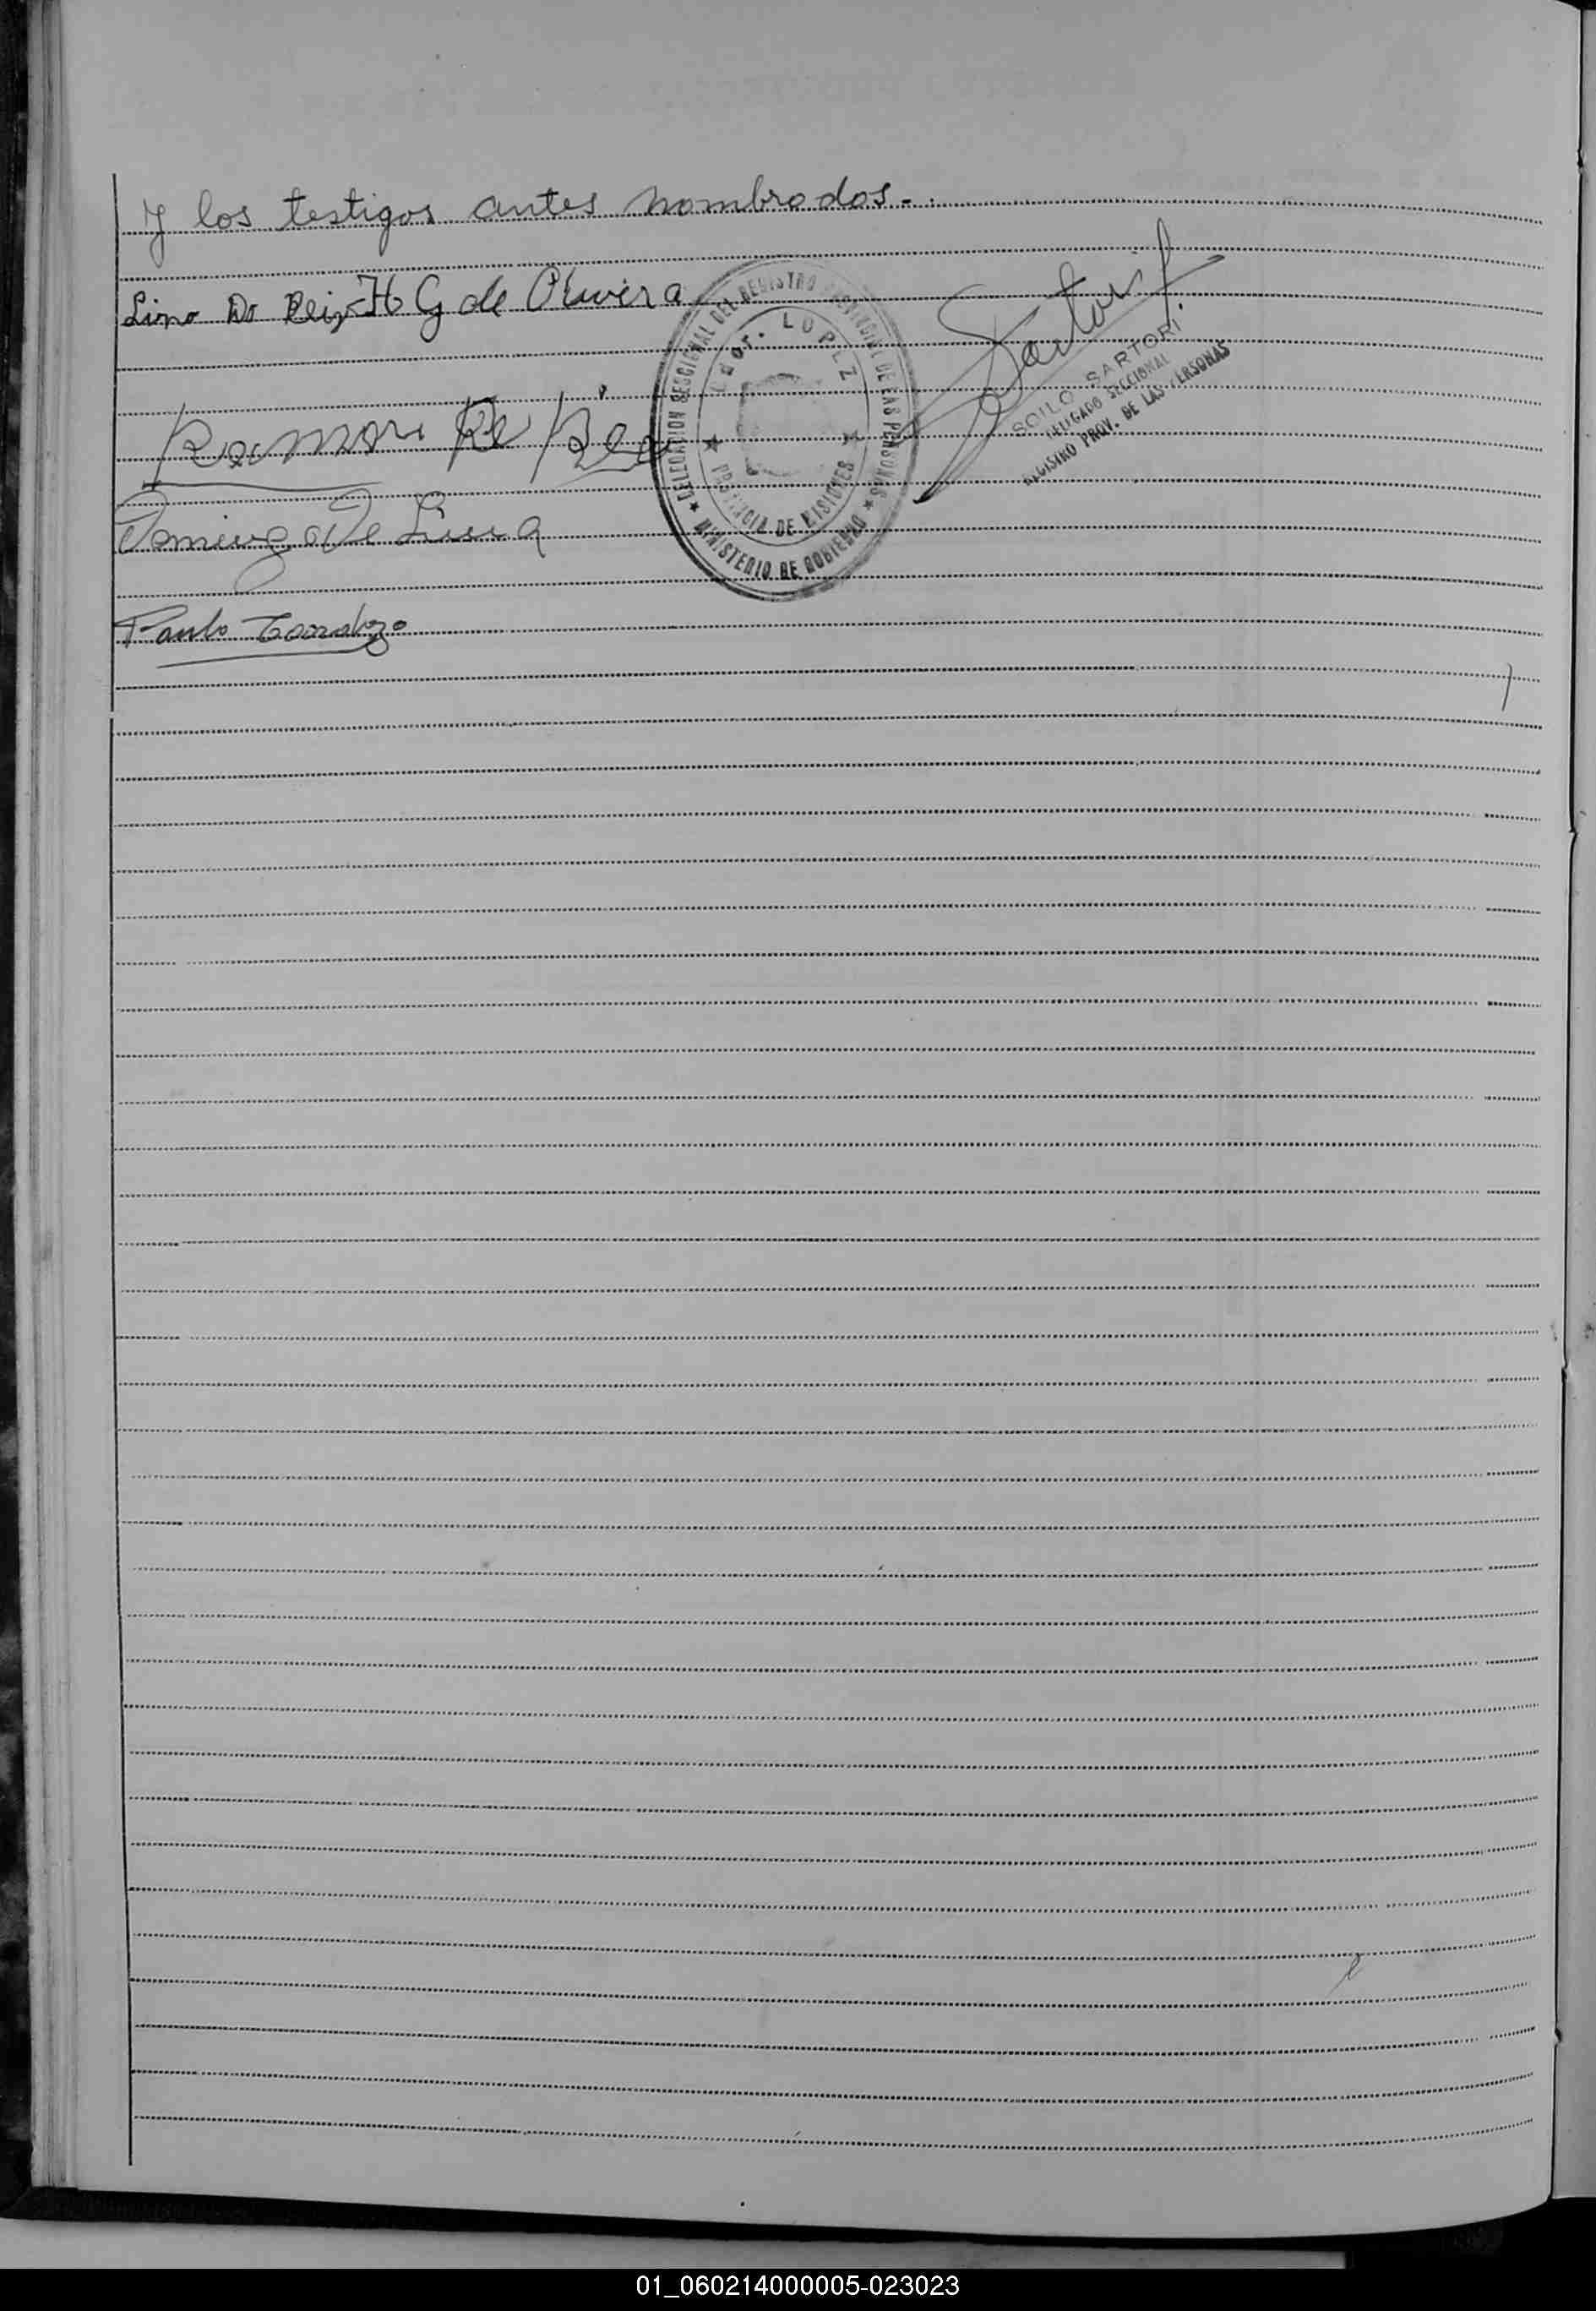 y los testigos antes nombrados.-.
Lino Do Reis H G de Olivera
Ramon Re
Domingo De Lima
Paulo Cardozo
Sartori
SOILO SARTORI
DELEGADO SECCIONAL
REGISTRO PROV. DE LAS PERSONAS
★ DELEGACION SECCIONAL DEL REGISTRO PROVINCIAL DE LAS PERSONAS ★
Gdor. LOPEZ
★ PROVINCIA DE MISIONES ★
MINISTERIO DE GOBIERNO
01_060214000005-023023